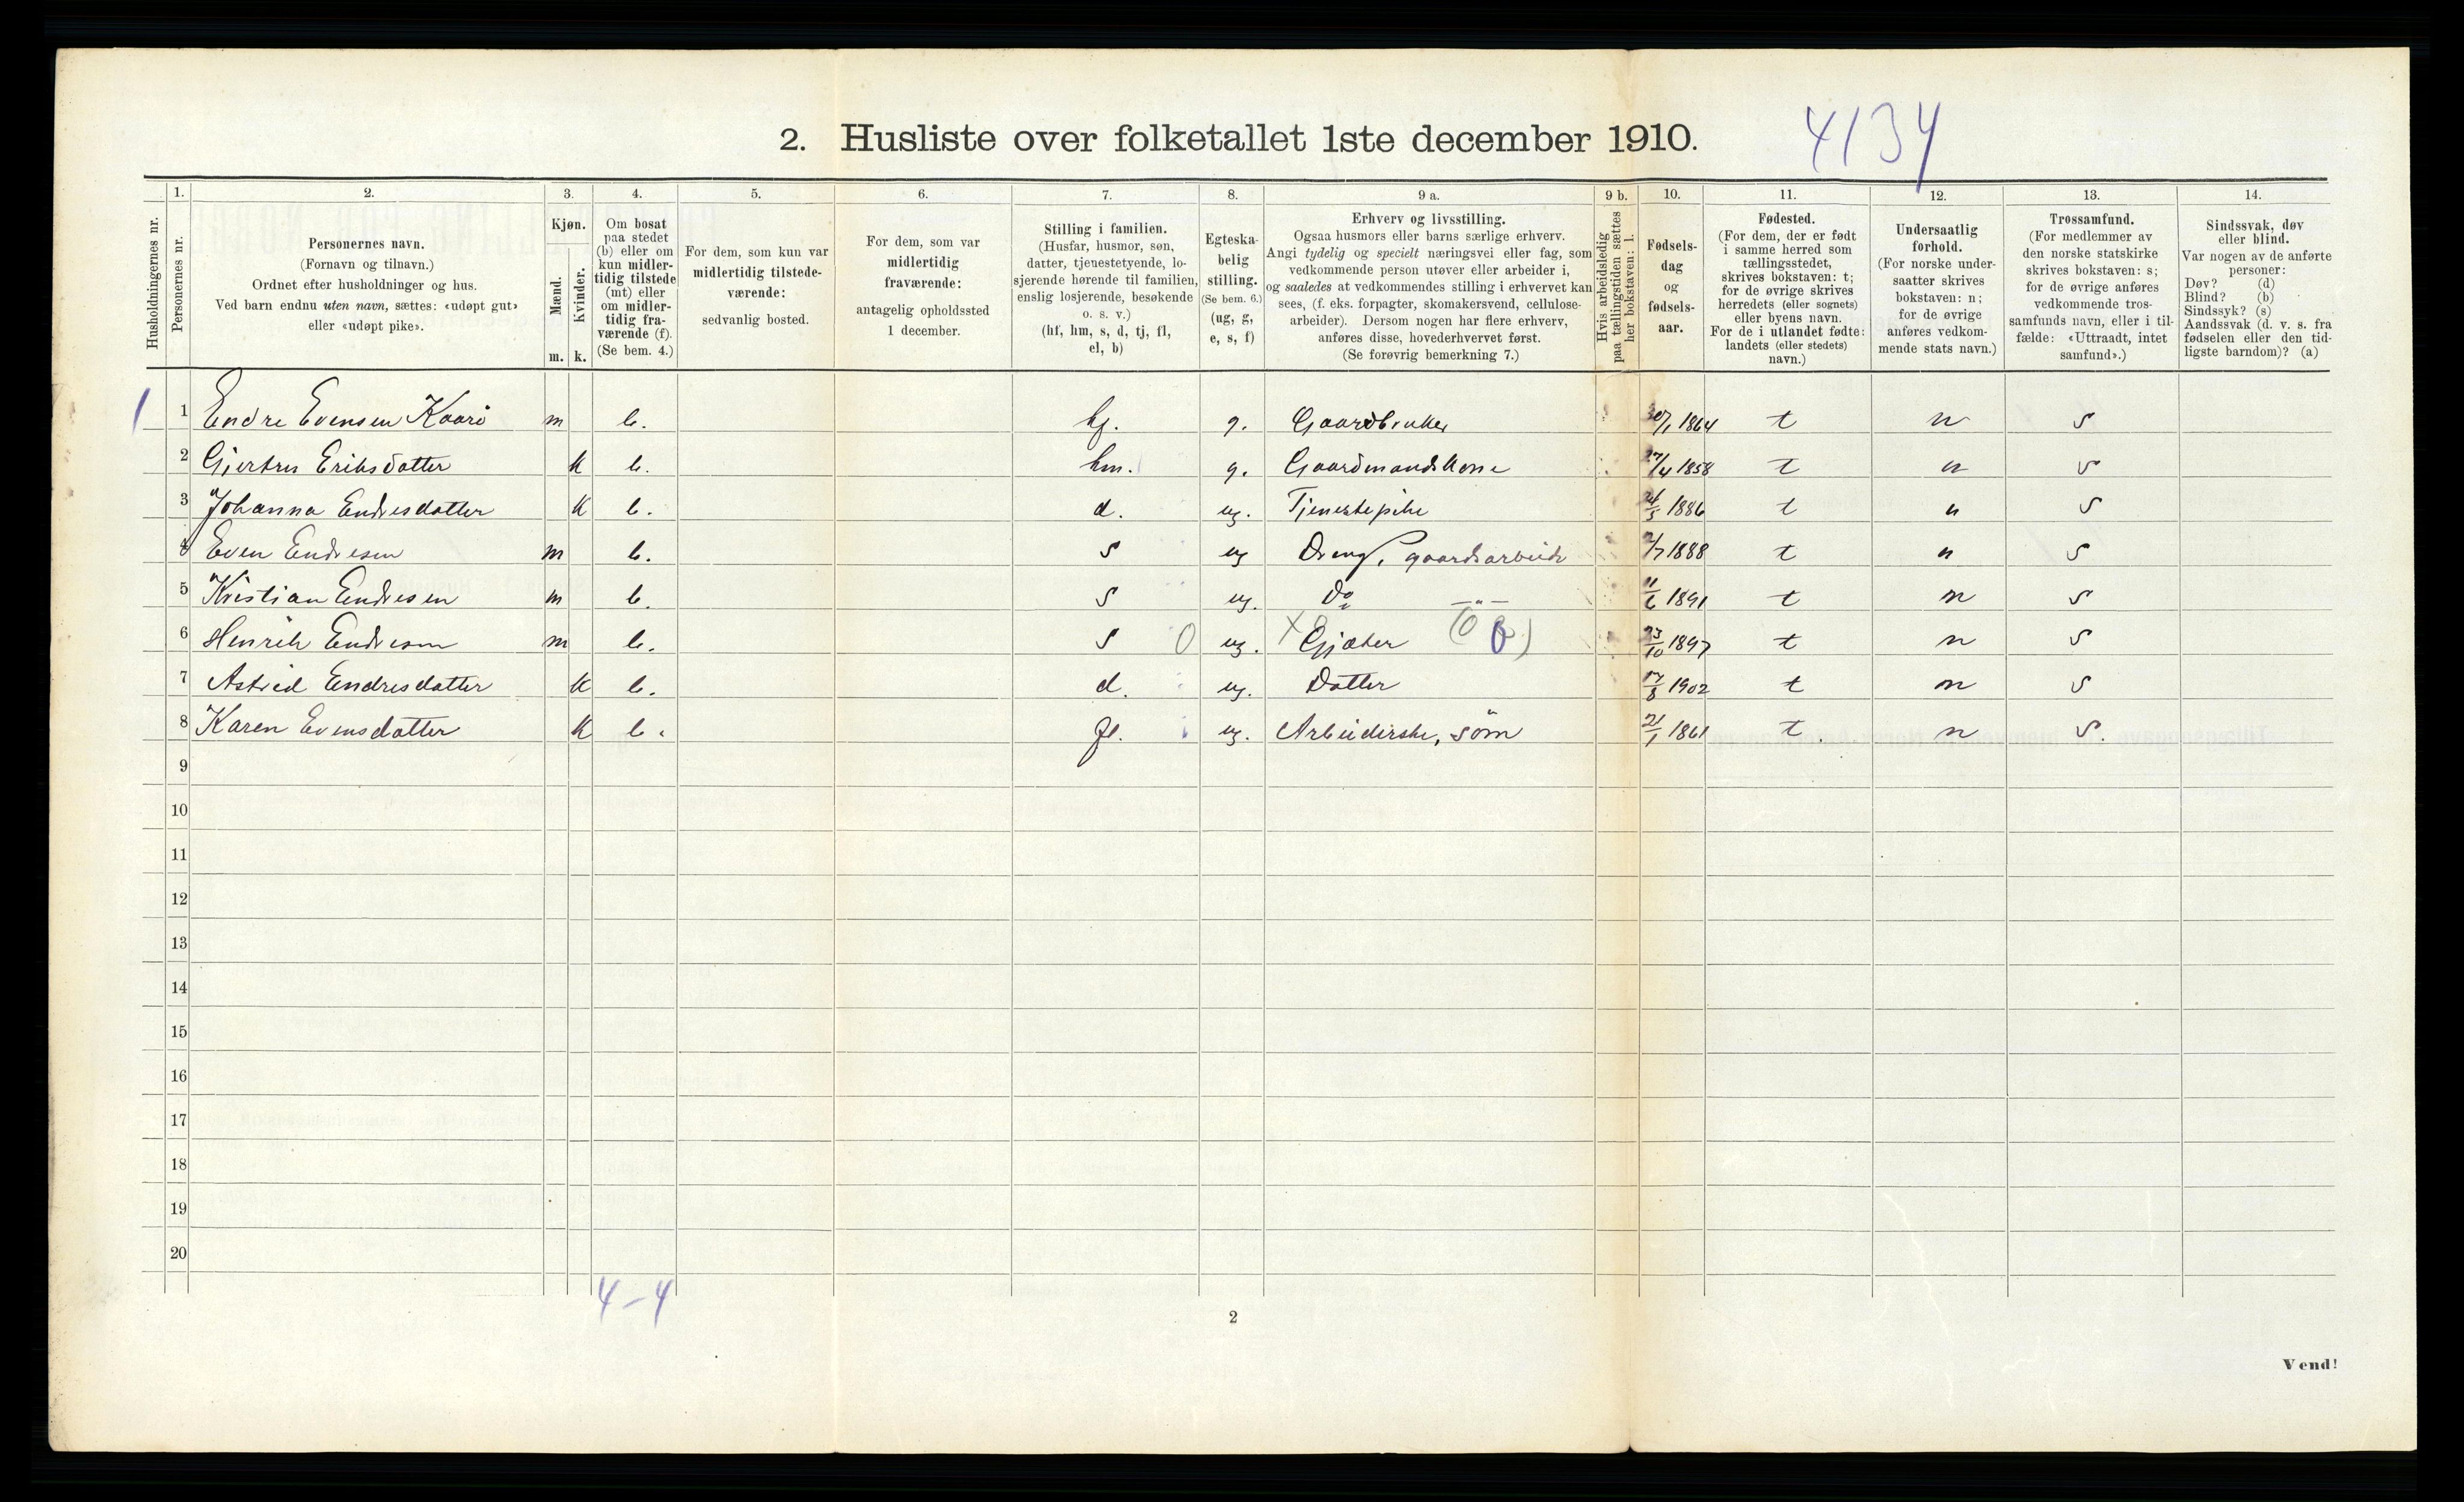 2. Husliste over folketallet 1ste december 1910.
4134
Husholdningernes nr.
1.
Personernes nr.
2.
Personernes navn.
(Fornavn og tilnavn.)
Ordnet efter husholdninger og hus.
Ved barn endnu uten navn, sættes: «udøpt gut»
eller «udøpt pike».
3.
Kjøn.
Mænd.
Kvinder.
m. k.
4.
Om bosat
paa stedet
(b) eller om
kun midler-
tidig tilstede
(mt) eller
om midler-
tidig fra-
værende (f).
(Se bem. 4.)
5.
For dem, som kun var
midlertidig tilstede-
værende:
sedvanlig bosted.
6.
For dem, som var
midlertidig
fraværende:
antagelig opholdssted
1 december.
7.
Stilling i familien.
(Husfar, husmor, søn,
datter, tjenestetyende, lo-
sjerende hørende til familien,
enslig losjerende, besøkende
o. s. v.)
(hf, hm, s, d, tj, fl,
el, b)
8.
Egteska-
belig
stilling.
(Se bem. 6.)
(ug, g,
e, s, f)
9 a.
Erhverv og livsstilling.
Ogsaa husmors eller barns særlige erhverv.
Angi tydelig og specielt næringsvei eller fag, som
vedkommende person utøver eller arbeider i,
og saaledes at vedkommendes stilling i erhvervet kan
sees, (f. eks. forpagter, skomakersvend, cellulose-
arbeider). Dersom nogen har flere erhverv,
anføres disse, hovederhvervet først.
(Se forøvrig bemerkning 7.)
9 b.
Hvis arbeidsledig
paa tællingstiden sættes
her bokstaven: l.
10.
Fødsels-
dag
og
fødsels-
aar.
11.
Fødested.
(For dem, der er født
i samme herred som
tællingsstedet,
skrives bokstaven: t;
for de øvrige skrives
herredets (eller sognets)
eller byens navn.
For de i utlandet fødte:
landets (eller stedets)
navn.)
12.
Undersaatlig
forhold.
(For norske under-
saatter skrives
bokstaven: n;
for de øvrige
anføres vedkom-
mende stats navn.)
13.
Trossamfund.
(For medlemmer av
den norske statskirke
skrives bokstaven: s;
for de øvrige anføres
vedkommende tros-
samfunds navn, eller i til-
fælde: «Uttraadt, intet
samfund».)
14.
Sindssvak, døv
eller blind.
Var nogen av de anførte
personer:
Døv? (d)
Blind? (b)
Sindssyk? (s)
Aandssvak (d. v. s. fra
fødselen eller den tid-
ligste barndom)? (a)
1 1 Endre Evensen Kaarø m b. hf. g. Gaardbruker 30/1 1864 t n s
2 Gjertru Eriksdatter k b. hm. g. Gaardmandskone 27/4 1858 t n s
3 Johanna Endresdatter k b. d. ug. Tjenestepike 21/5 1886 t n s
4 Even Endresen m b. s ug Dreng, gaardsarbeide 2/7 1888 t n s
5 Kristian Endresen m b. s ug. Do —„— 11/6 1891 t n s
6 Henrik Endresen m b. s 0 ug. X Gjæter 23/10 1897 t n s
7 Astrid Endresdatter k b. d. ug. Datter 17/8 1902 t n s
8 Karen Evensdatter k b. fl. ug. Arbeiderske, söm 21/1 1861 t. n s.
9
10
11
12
13
14
15
16
17
18
19
20
4-4
2
Vend!